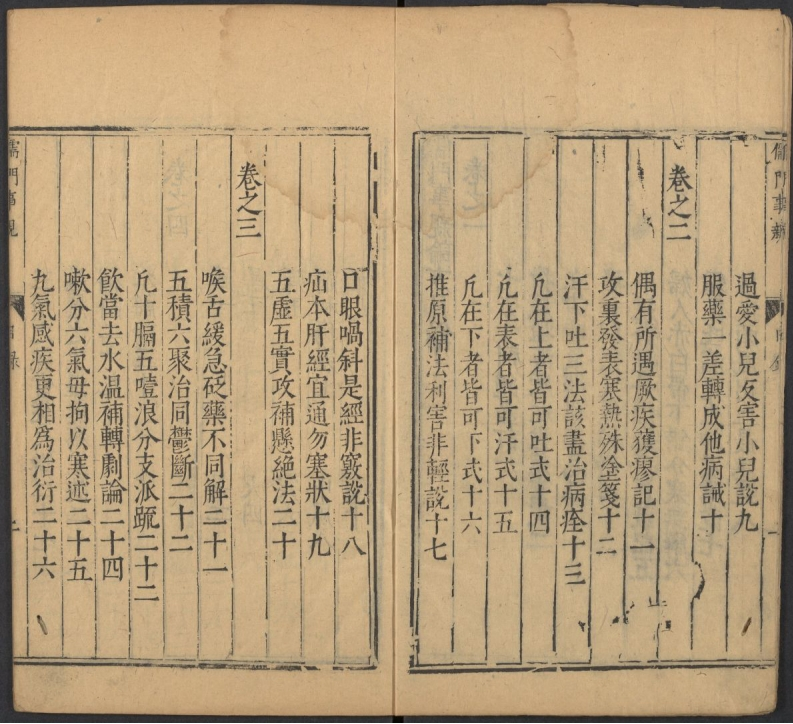 過愛小兒反害小兒說九
服藥一差轉成他病誡十
卷之二
偶有所遇厥疾獲瘳記十一
攻裏發表寒熱殊塗箋十二
汗下吐三法該盡治病痊十三
凢在上者皆可吐式十四
凢在表者皆可汗式十五
凢在下者皆可下式十六
推原補法利害非輕說十七
口眼喎斜是經非竅說十八
疝本肝經宜通勿塞狀十九
五虛五實攻補懸絶法二十
卷之三
喉舌緩急砭藥不同解二十一
五積六聚治同鬱斷二十二
凢十膈五噎浪分支派䟽二十二
飲當去水溫補轉劇論二十四
嗽分六氣毋拘以寒述二十五
九氣感疾更相為治衍二十六
儒門事親
目录